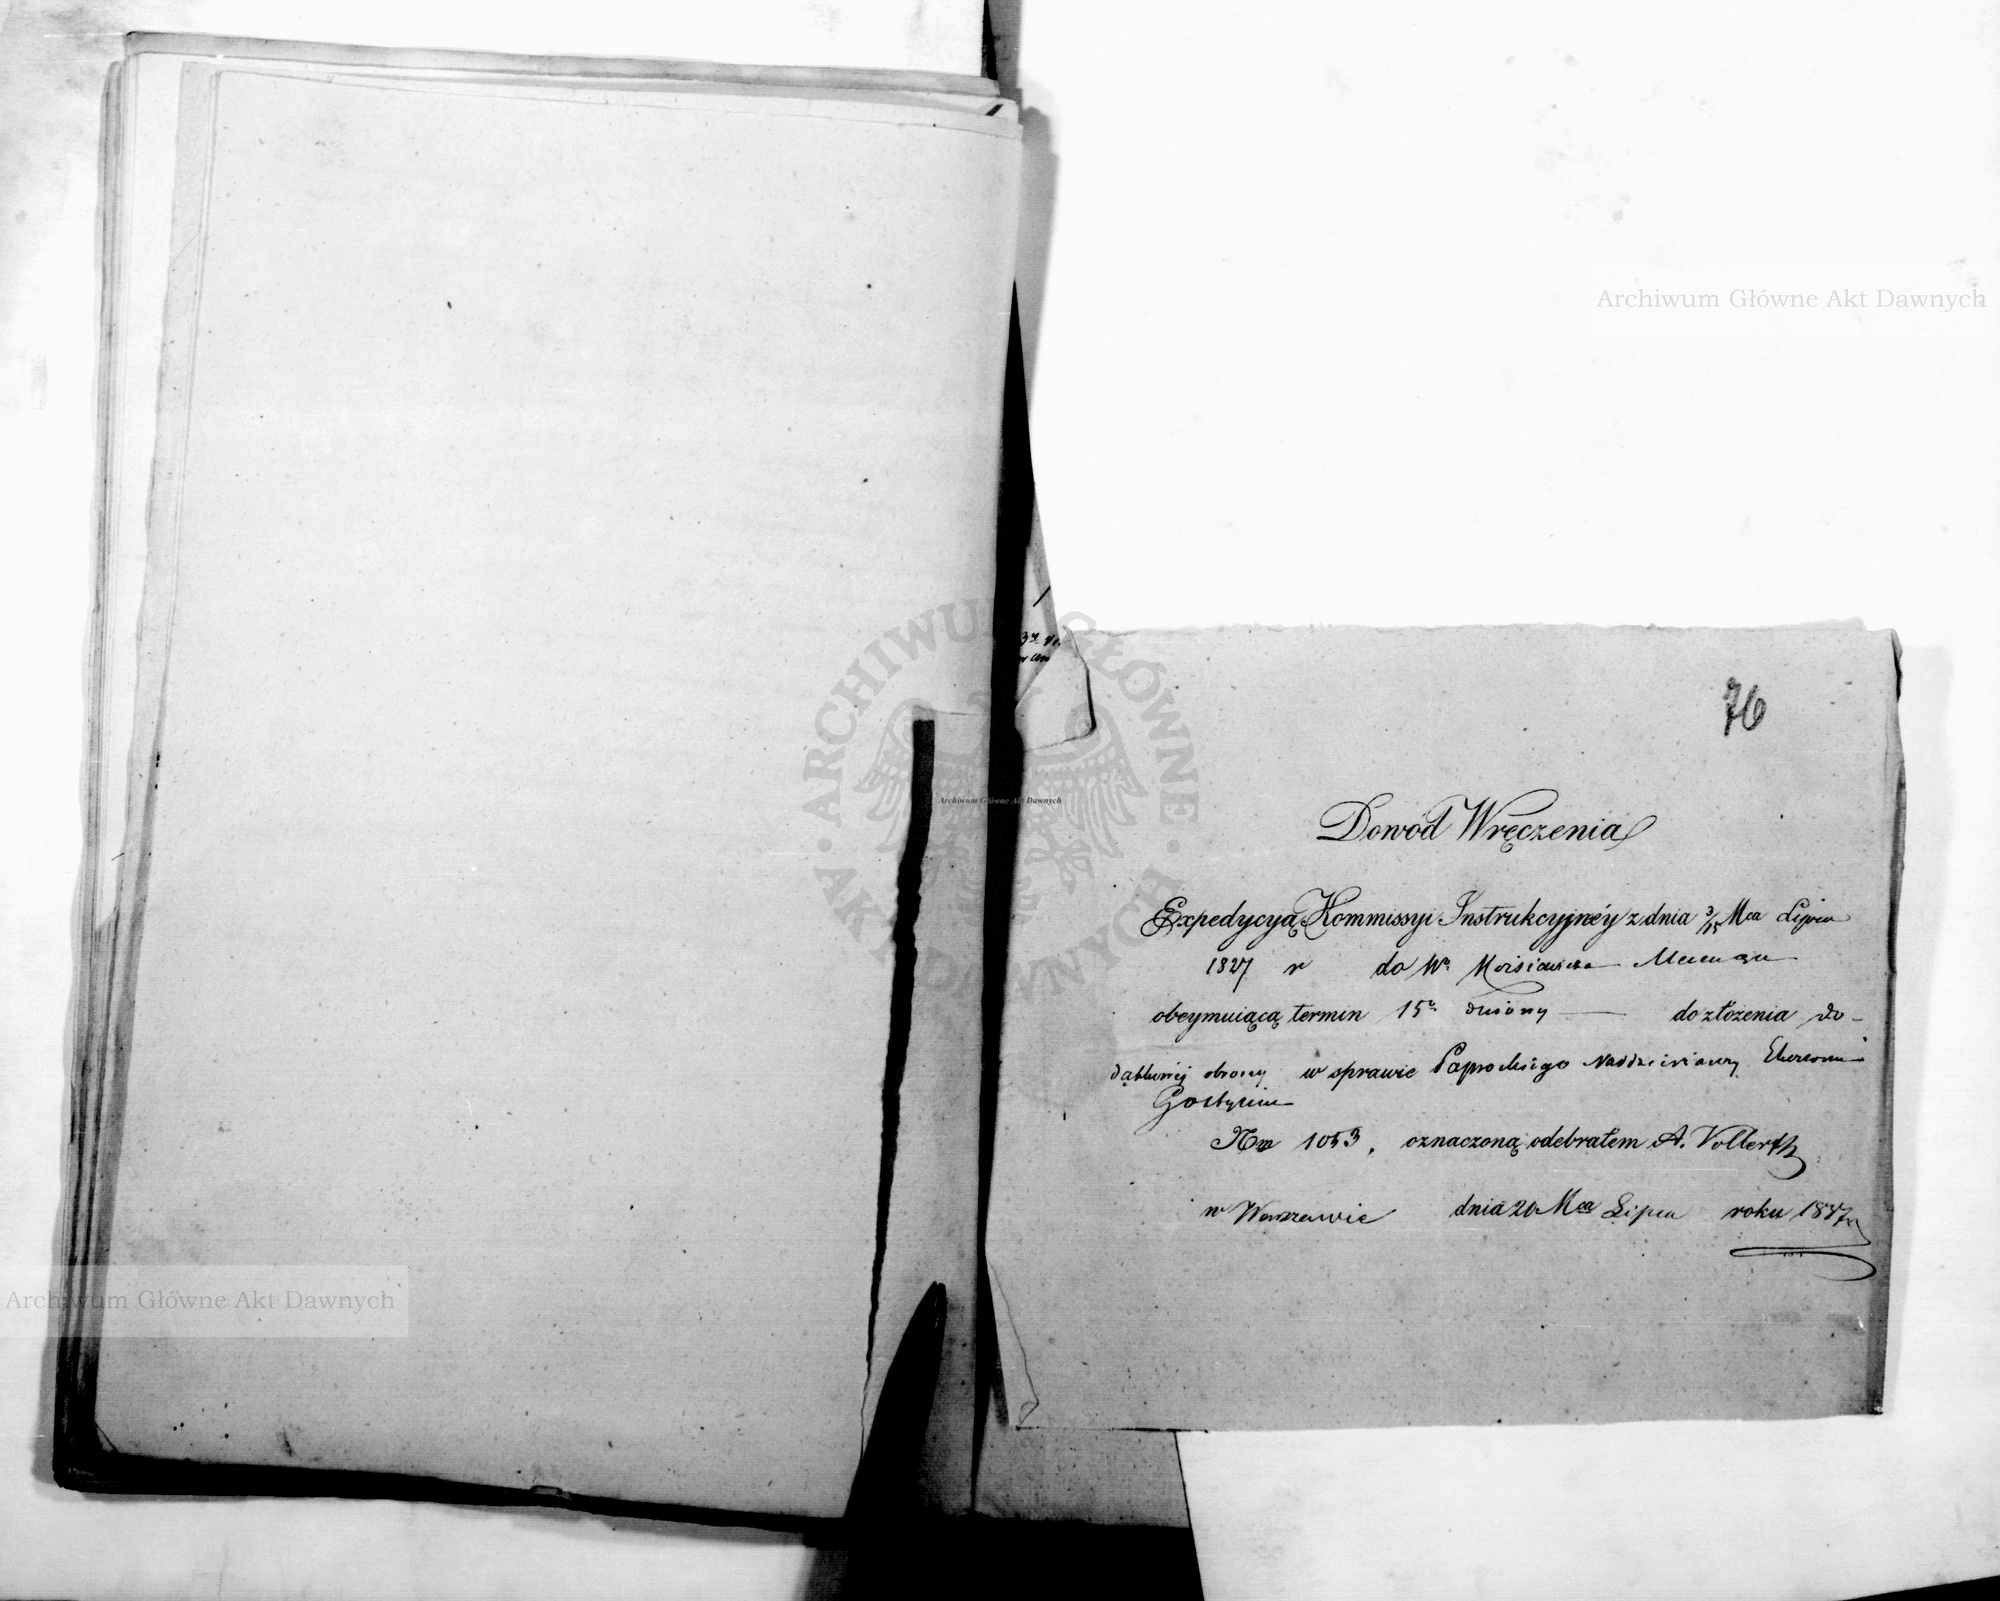 Archiwum Główne Akt Dawnych
76
ARCHIWUM GŁÓWNE AKT DAWNYCH
Archiwum Główne Akt Dawnych
Dowód Wręczenia
Expedycyą Kommissyi Instrukcyjnéy z dnia 3/15 Mca Lipca
1837 r do Wo
obeymuiącą termin 15o dniowy — do złożenia do-
obrony w sprawie Paprockiego Naddzierżawcy Ekonomii
Gostynin
Nm 1053, oznaczoną odebrałem A. Vollerth
w Warszawie dnia 20 Mca Lipca roku 1837
Archiwum Główne Akt Dawnych